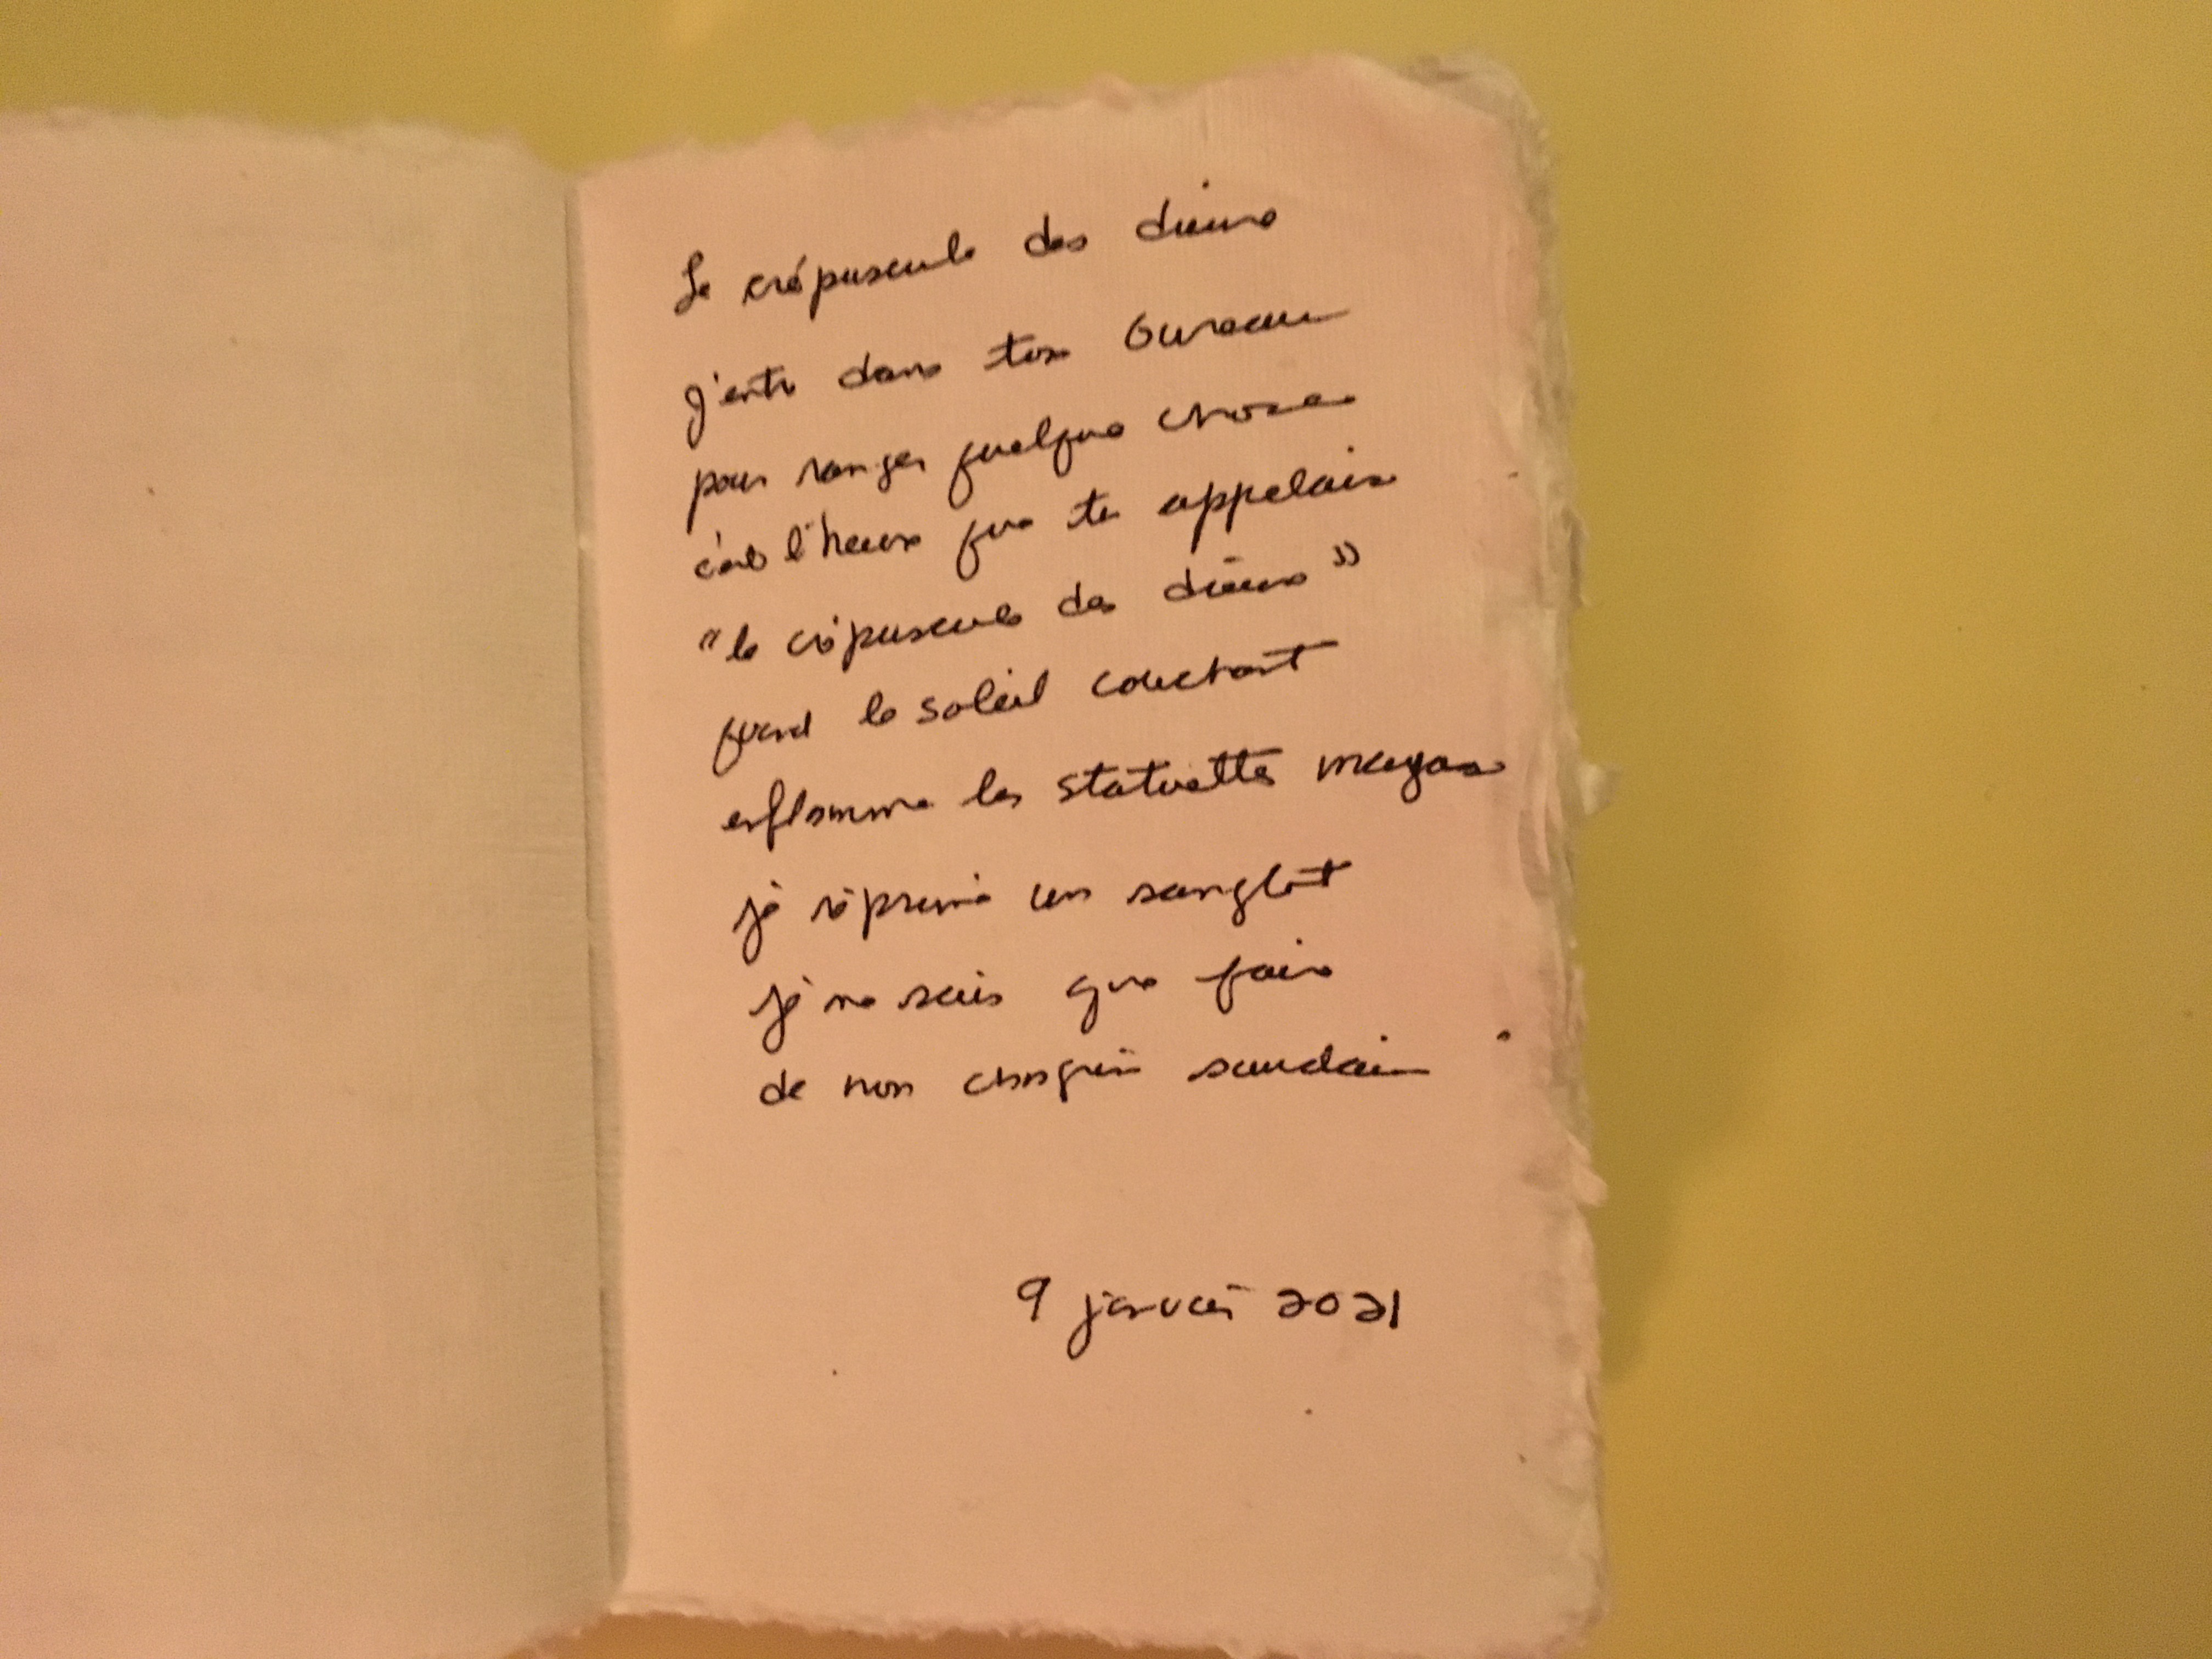 Le crépuscule des dieux
J'entre dans ton bureau
pour ranger quelque chose
c'est l'heure que tu appelais
"le crépuscule des dieux"
quand le soleil couchant
enflamme les statuettes mayas
je réprime un sanglot
je ne sais que faire
de mon chagrin soudain
9 janvier 2021